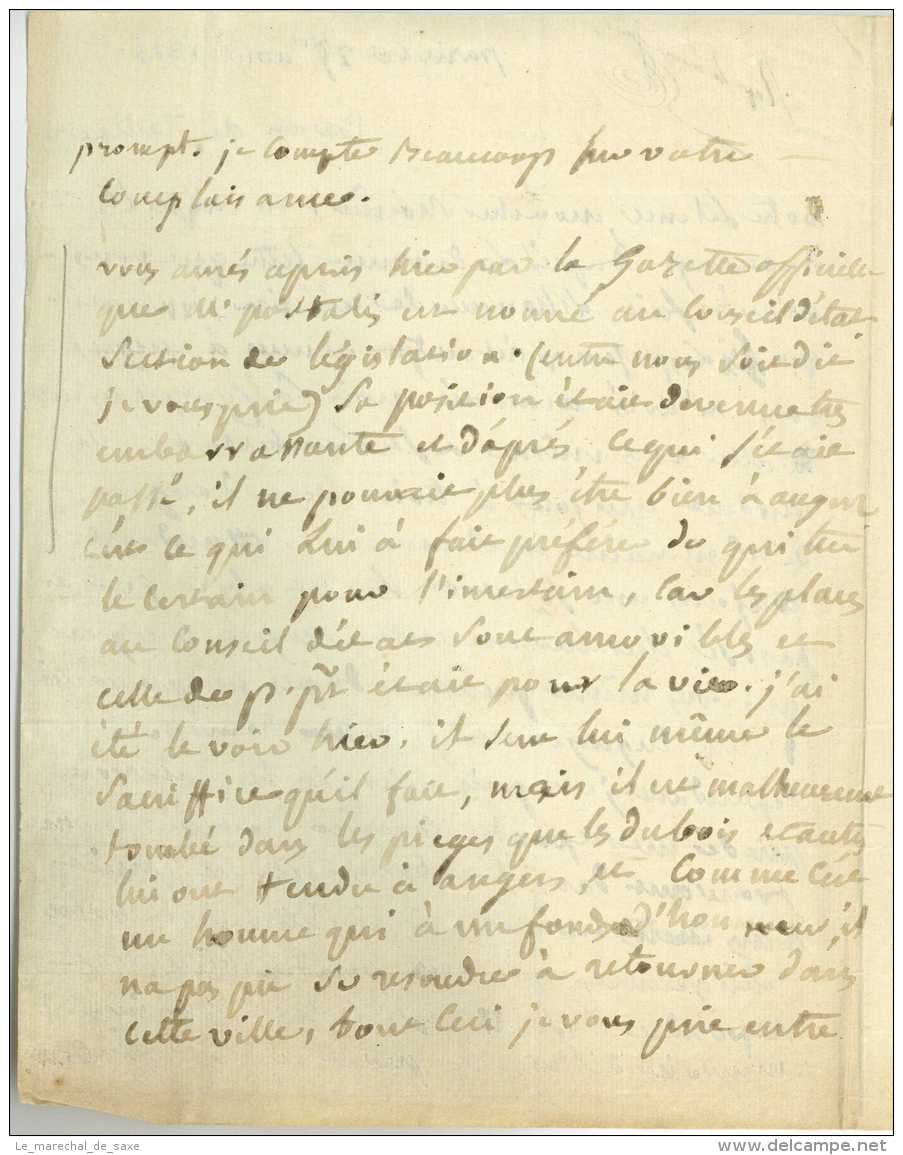 prompt. je compte Beaucoup sur votre
complaisance.
vous aurés apris hier par la Gazette officielle
que Mr portalis est nommé au Conseil d'état
Section de législation. (entre nous soit dit
je vous prie) Sa position était devenue très
embarrassante et d'après ce qui s'étoit
passé, il ne pouvoit plus être bien à angers
c'est ce qui Lui à fait préféré de quitter
le certain pour l'incertain, car les places
au Conseil d'état sont amovibles et
celle de p. pr était pour la vie. j'ai
été le voir hier. il sent lui même le
Sacriffice qu'il fait, mais il est malheureusement
tombé dans les pieges que les dubois et autres
lui ont tendu à angers, et Comme C'est
un homme qui à un fonds d'honneur, il
n'a pas pu se resoudre à retourner dans
cette ville, tout Ceci je vous prie entre
Le_marechal_de_saxe
www.delcampe.net